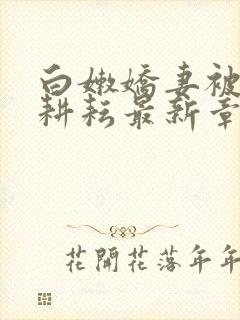 白嫩嬌妻被
耕耘最新章
花開花落年年